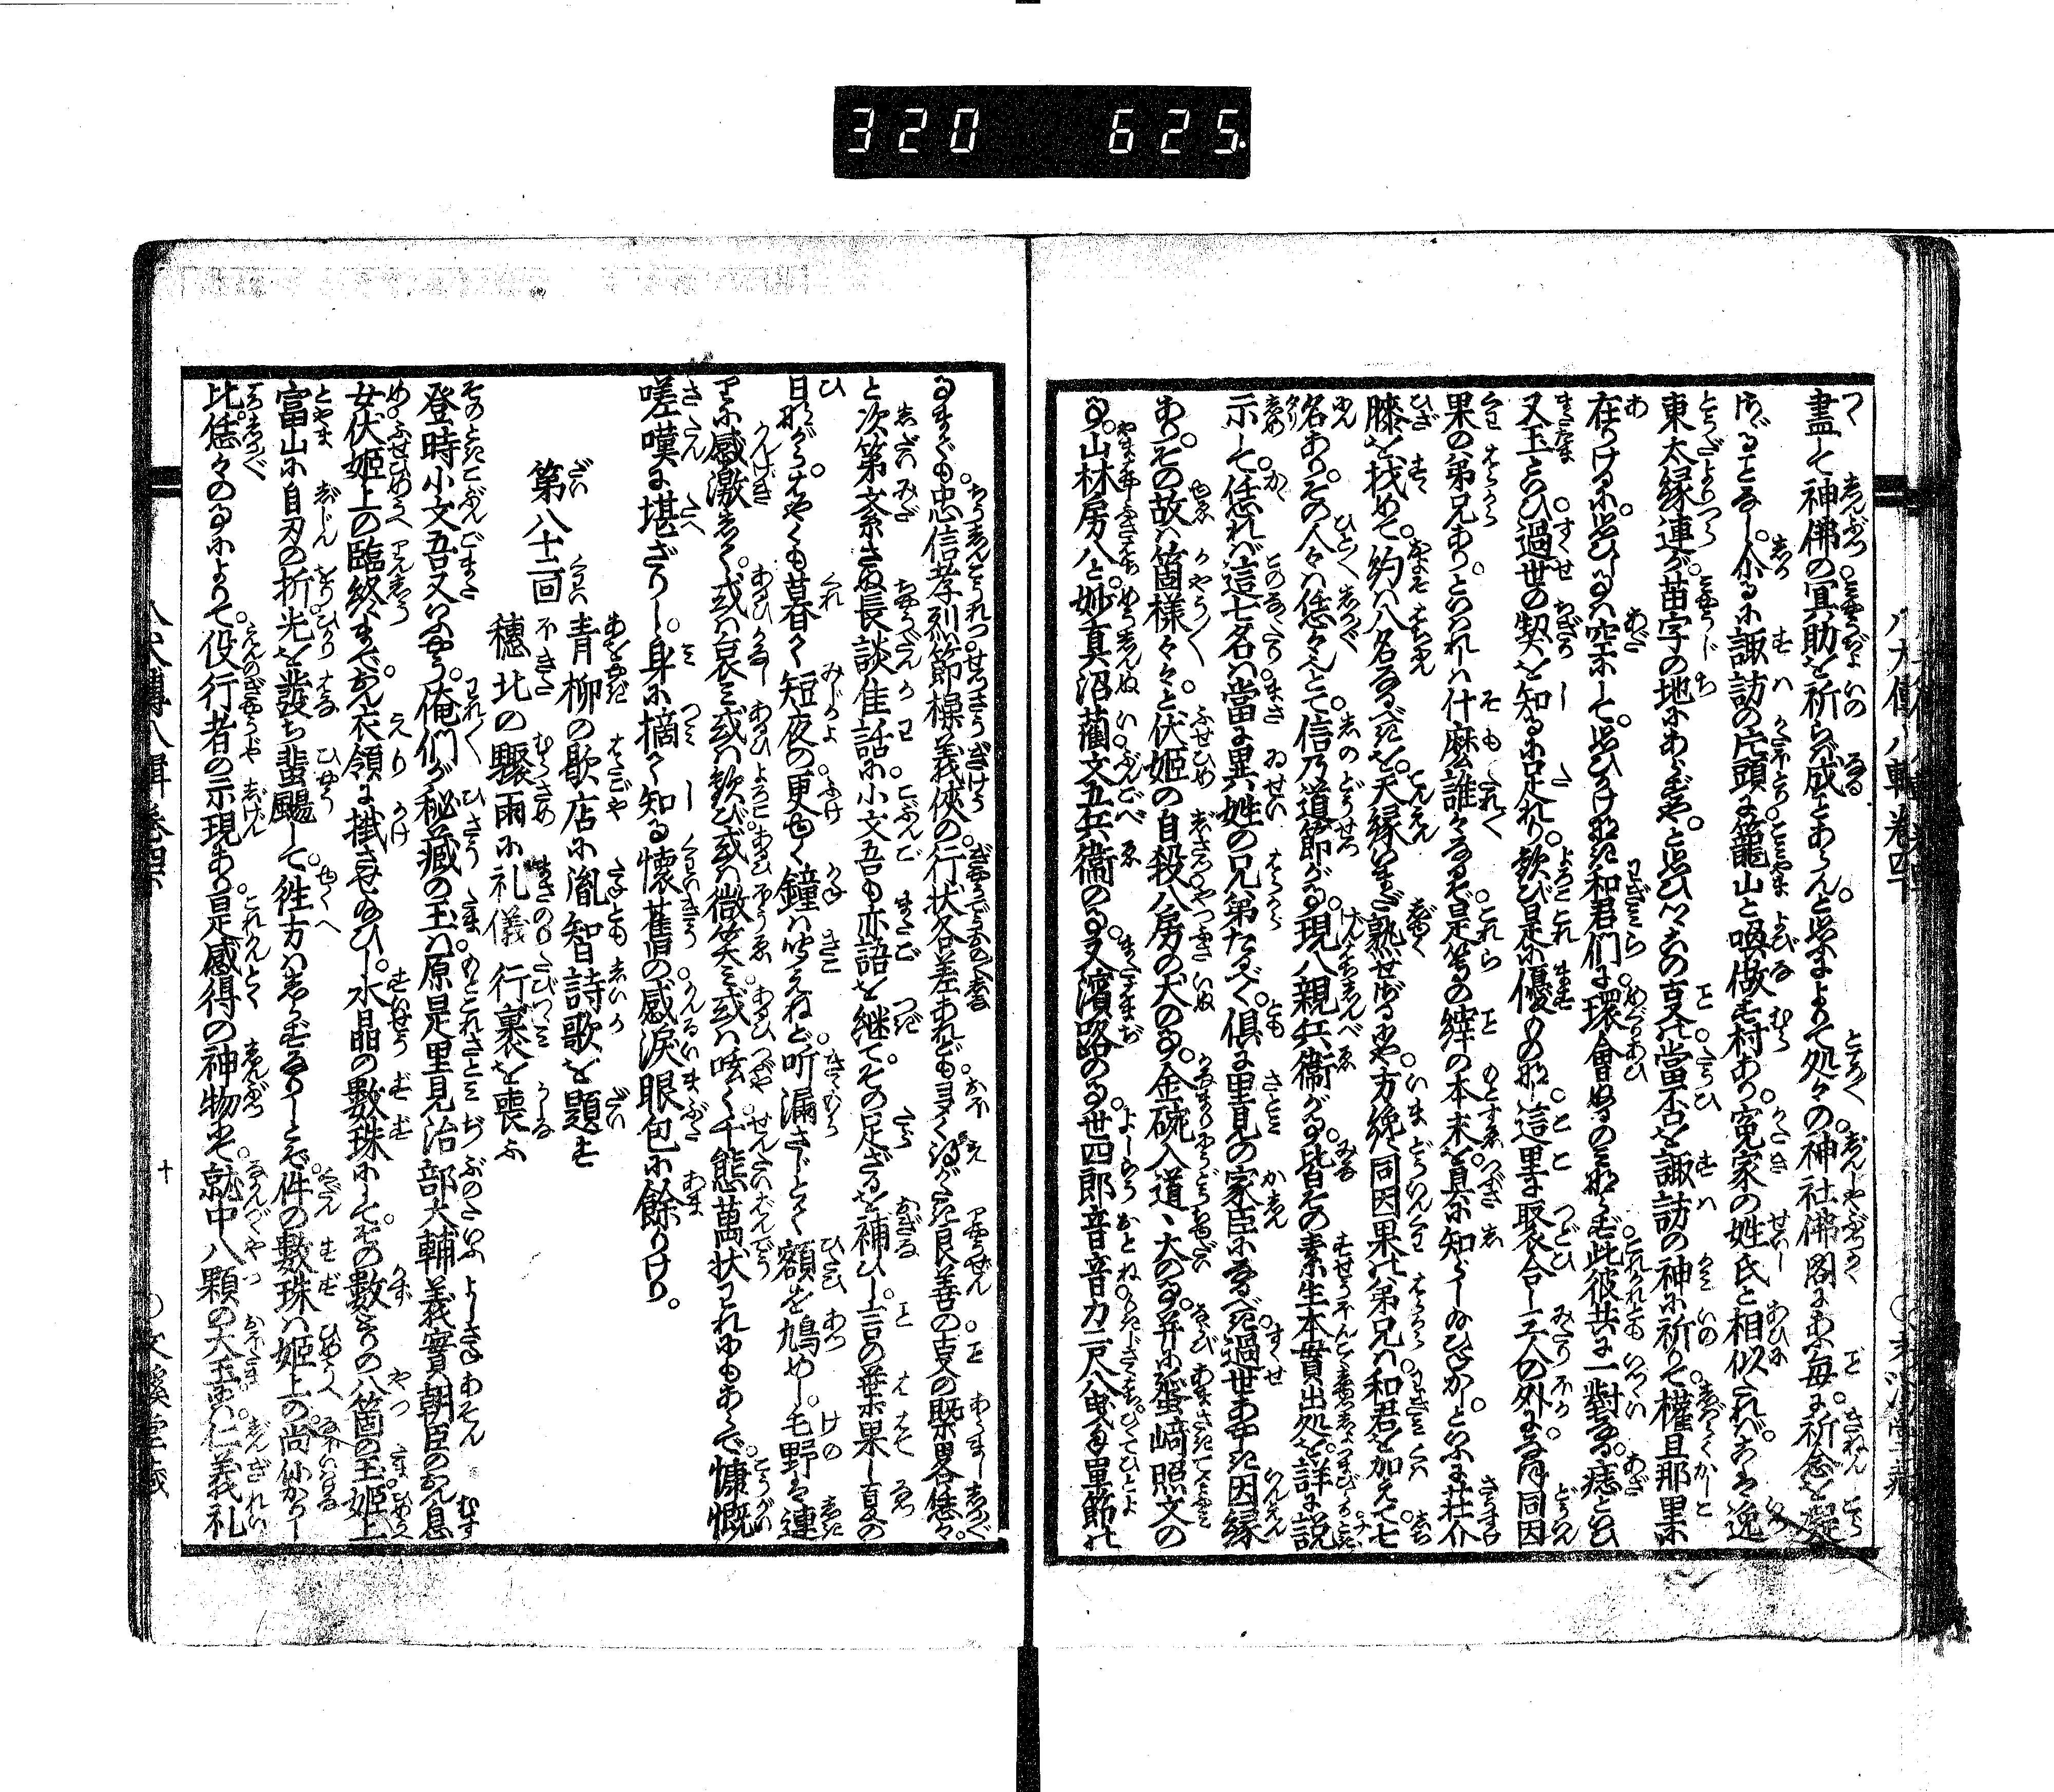 320 625
盡して神佛の冥助を祈らバ感とあらんと思ふによりて処々の神社佛閣にあふ毎に祈念を凝
さゞることなし。介るに諏訪の片頭に籠山と喚做す村あり。寃家の姓氏と相似たれバ、こゝも逸
東太縁連が苗字の地にあらずや、と思ひつゝその事の當否を諏訪の神に祈りて、權且那里に
在りけるに、思ひしハ空にして、思ひがけなき和君們に環會ぬるのみならず、此彼共に一對なる痣といひ
又玉といひ過世の契を知るに足れり。歓び是に優ものなし。這里に聚合し三人の外に、なほ同因
果の弟兄ありといはれしハ、什麽誰々なるぞ。是等の縡の本末を具に知らしゐひねかし、といふに荘介
膝を找めて、約ハ八名なるべきを、天縁いまだ熟せざるにや、方纔同因果の弟兄ハ和君を加えて七
名あり。その人々ハ恁々とて、信乃道節が事、現八親兵衛が事、皆その素生本貫出処を、詳に説
示して、恁れバ這七名ハ當に異姓の兄弟たるべく、倶に里見の家臣になるべき、過世ありけん因縁
あり。その故ハ箇様々々と、伏姫の自殺八房の犬の事、金碗入道丶大の事、并に蜑﨑照文の
事、山林房八と、妙真沼藺文五兵衛の事、又濱路の事、世四郎音音力二尺八曳手單節の
事までも、忠信孝烈節操義侠の行状各差あれども、多く得がたき良善の事の概畧恁々
と次第紊さぬ長談佳話に、小文吾も亦語を継て、その足ざるを補ひし、言の葉果しし夏の
日ながら、はやくも暮て短夜の更ゆく鐘ハ聞えねど、听漏さじとて額を鳩めし、毛野ハ連
りに感激しく、或ハ哀み或ハ歓び、或ハ微笑み或ハ呟く、千態萬状われにもあらで、慷慨
嗟嘆に堪ざりし。身に摘て知る懐舊の感涙眼包に餘りけり。
第八十二回
青柳の歇店に胤智詩歌を題す
穗北の驟雨に礼儀行裹を喪ふ
登時小文吾又いふやう、俺們が秘藏の玉ハ、原是里見治部大輔義實朝臣のおん息
女、伏姫上の臨終まで、おん衣領に掛させゐひし、水晶の數珠にして、その數とりの八箇の玉、姫上
富山に自刃の折、光を發ち蜚颺して、徃方ハしらずなりしとぞ。件の數珠ハ姫上の尚稚かりし
比、恁々の事によりて、役行者の示現あり。是感得の神物也。就中八顆の大玉ハ、仁義礼
八犬傳八輯巻四下
十
文溪堂藏